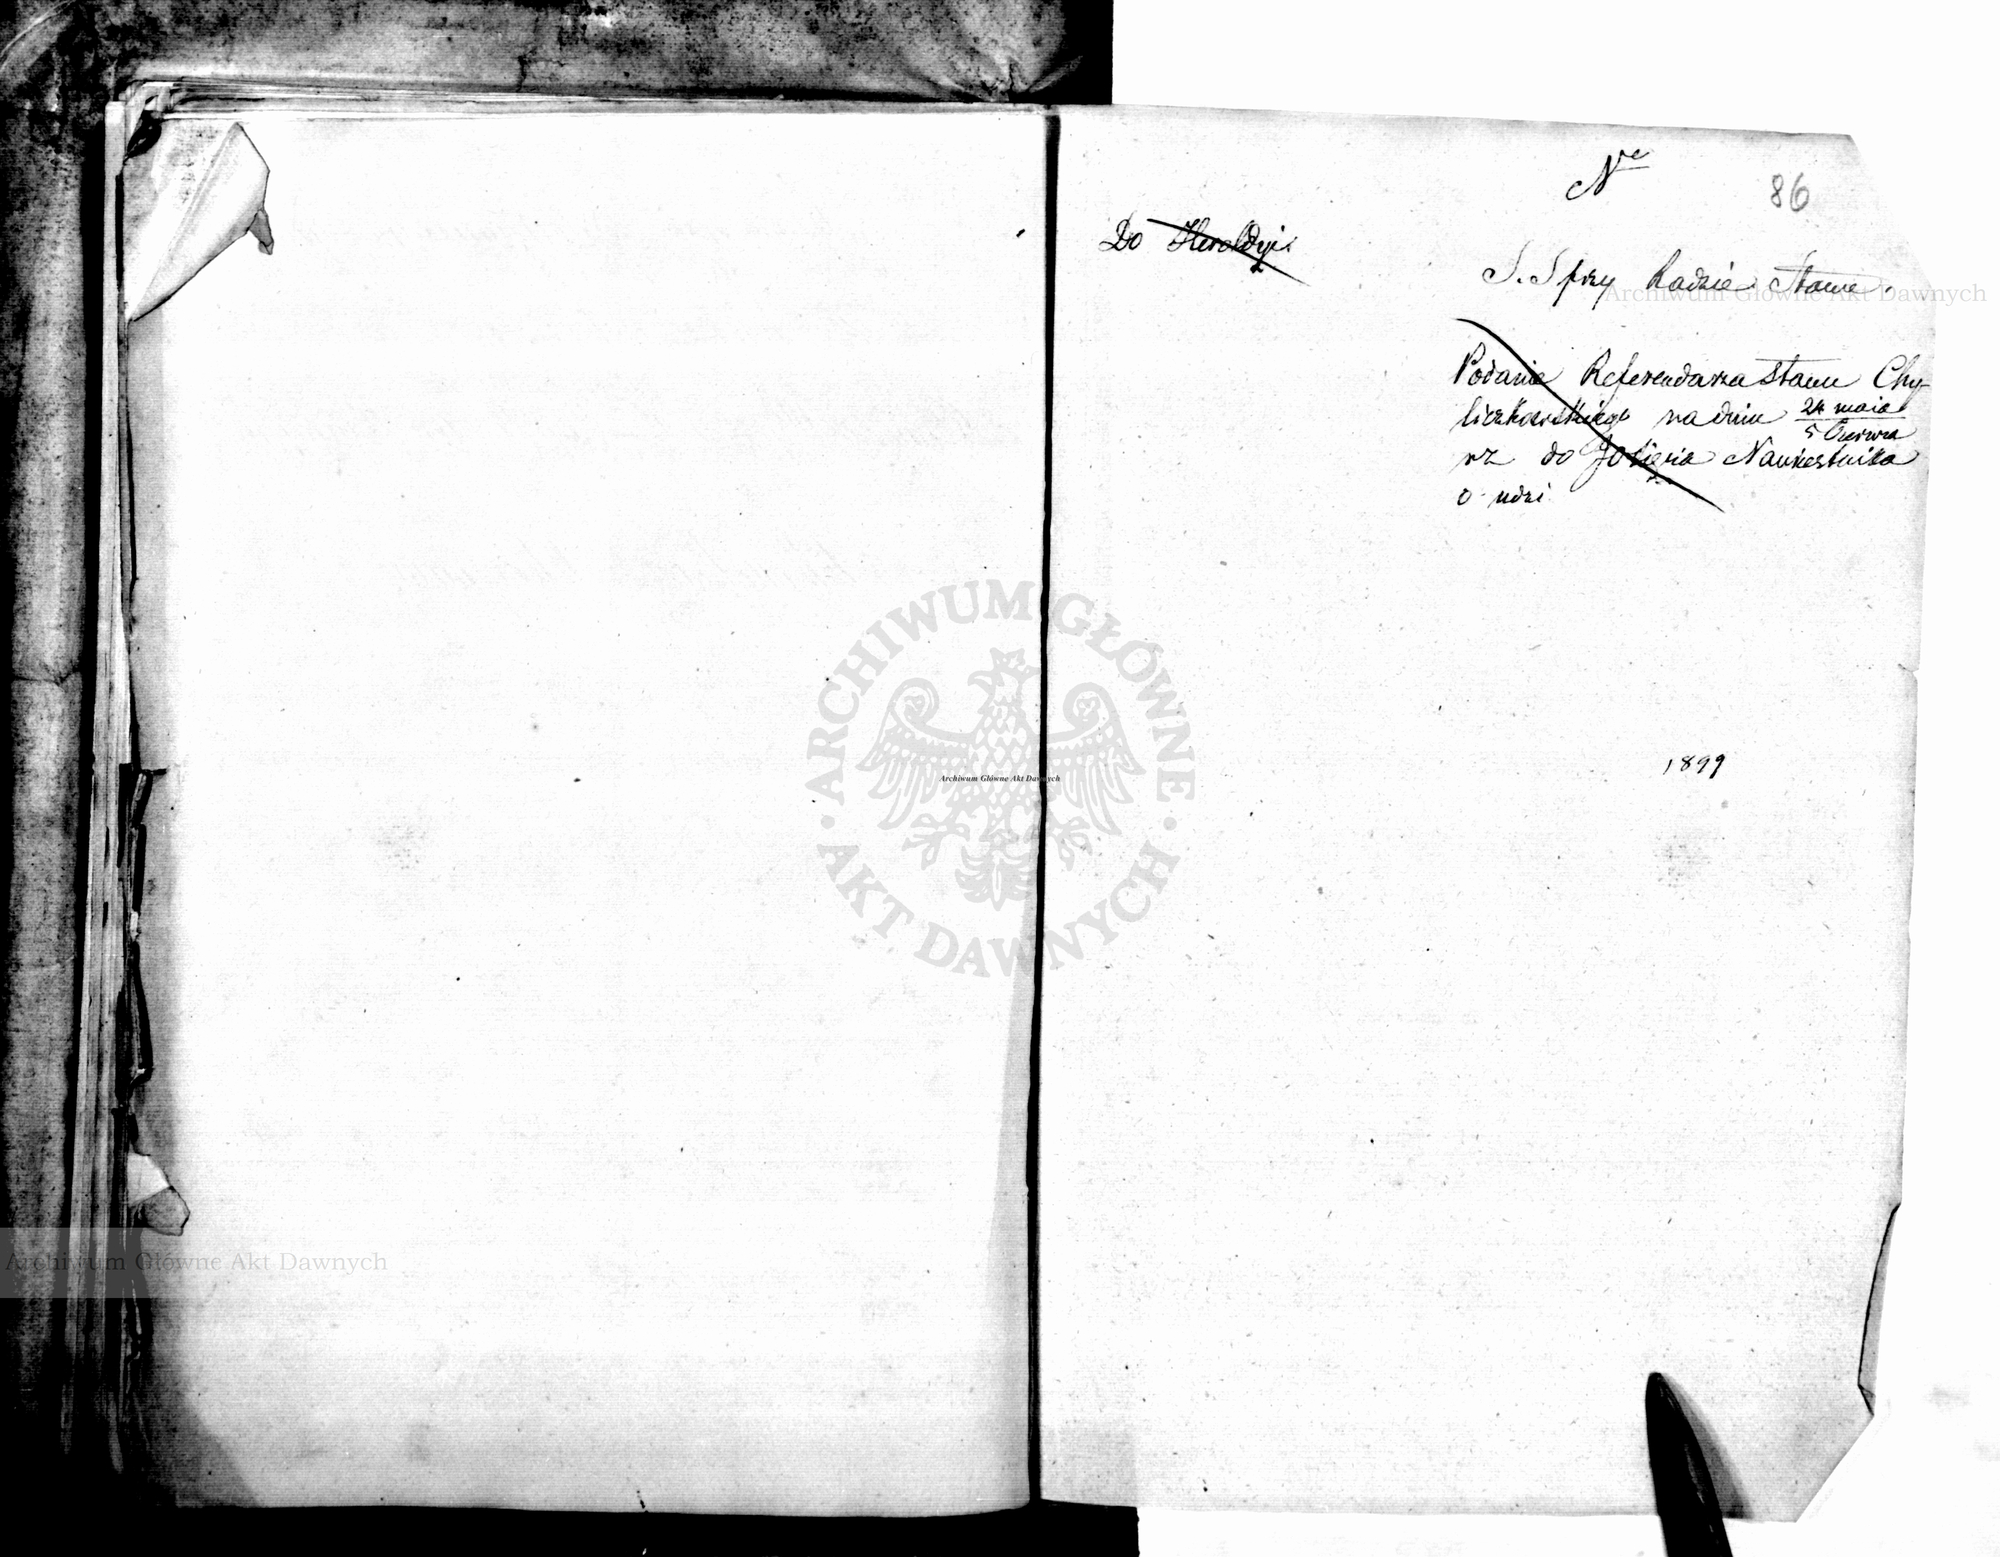 Nº
86
Do Heroldyi
S. S przy Radzie Stanu.
Podanie Referendarza Stanu Chy-
liczkowskiego na dniu 24 maia / 5 Czerwca
rz do JO Xięcia Namiestnika
o udzi
1899
Archiwum Główne Akt Dawnych
ARCHIWUM GŁÓWNE
Archiwum Główne Akt Dawnych
AKT DAWNYCH
Archiwum Główne Akt Dawnych